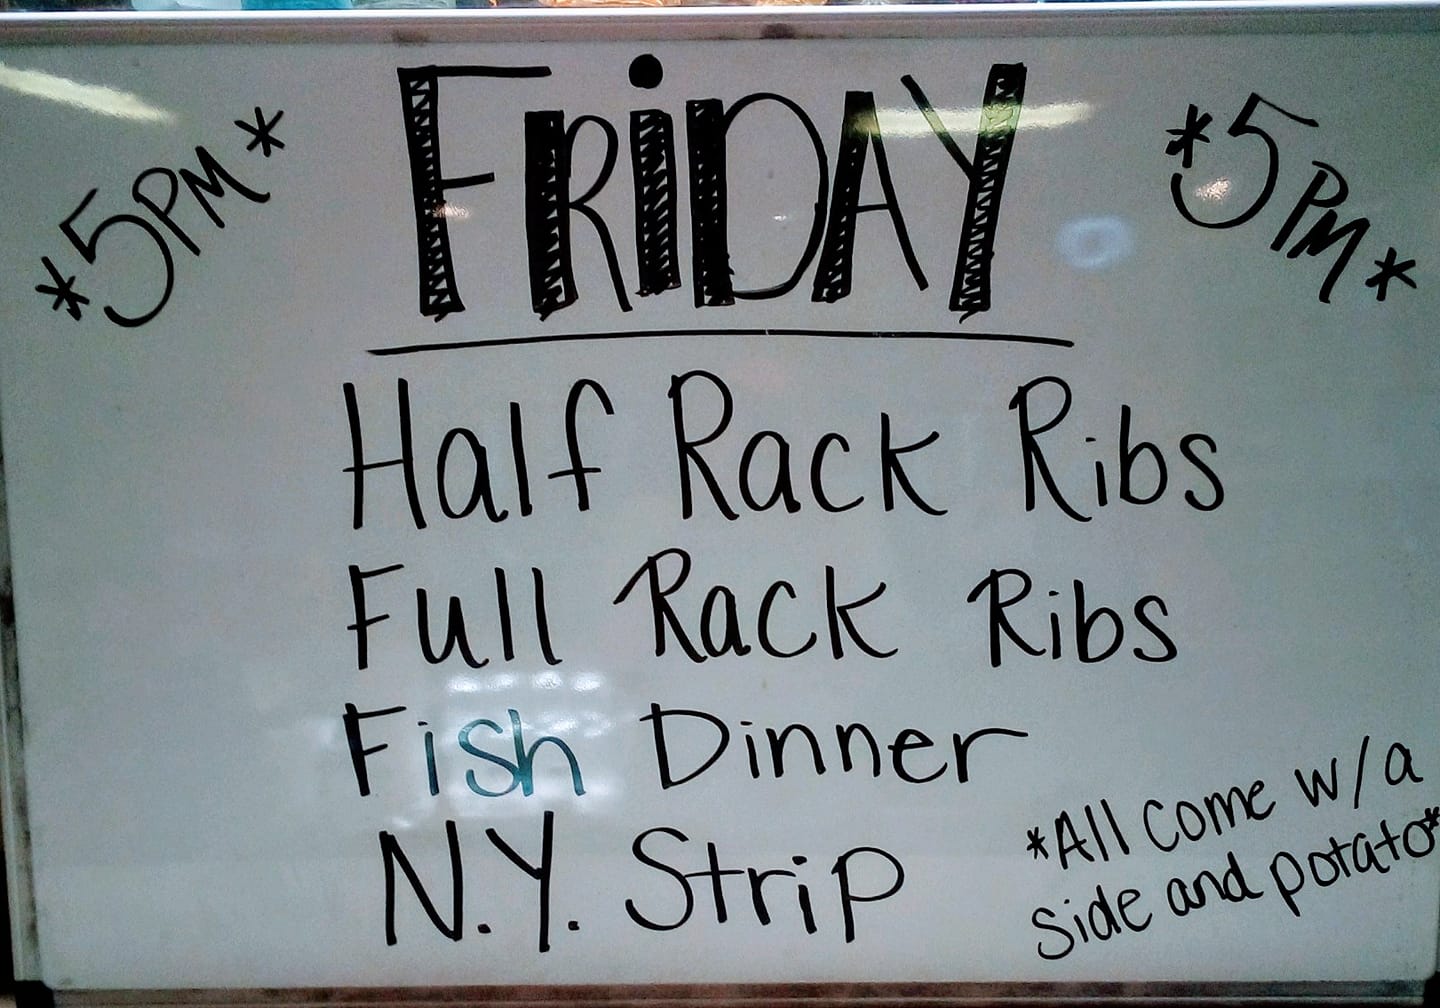 *5PM*
FRiDAY
*5PM*
Half Rack Ribs
Full Rack Ribs
Fish Dinner
N.Y. Strip
*All come w/a
side and potato*